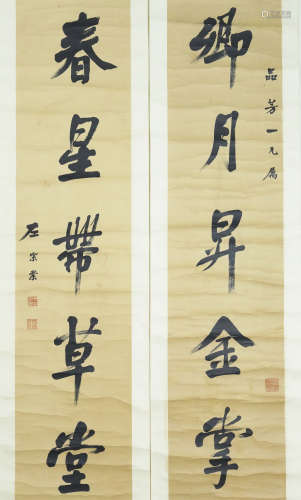 品芳一兄属
卿月昇金掌
春星帶草堂
左宗棠